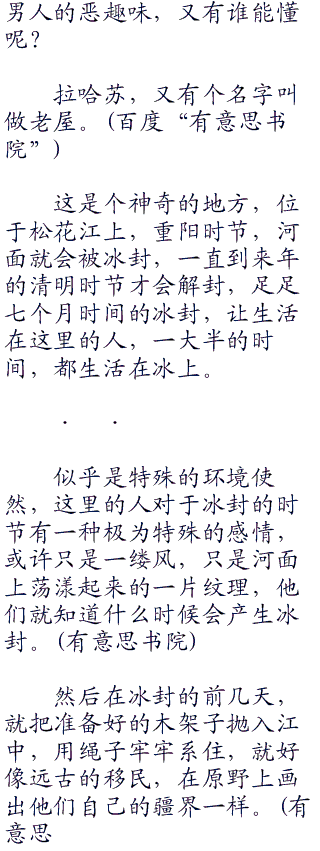 男人的恶趣味，又有谁能懂
呢？
拉哈苏，又有个名字叫
做老屋。(百度“有意思书
院”)
这是个神奇的地方，位
于松花江上，重阳时节，河
面就会被冰封，一直到来年
的清明时节才会解封，足足
七个月时间的冰封，让生活
在这里的人，一大半的时
间，都生活在冰上。
· ·
似乎是特殊的环境使
然，这里的人对于冰封的时
节有一种极为特殊的感情，
或许只是一缕风，只是河面
上荡漾起来的一片纹理，他
们就知道什么时候会产生冰
封。(有意思书院)
然后在冰封的前几天，
就把准备好的木架子抛入江
中，用绳子牢牢系住，就好
像远古的移民，在原野上画
出他们自己的疆界一样。(有
意思